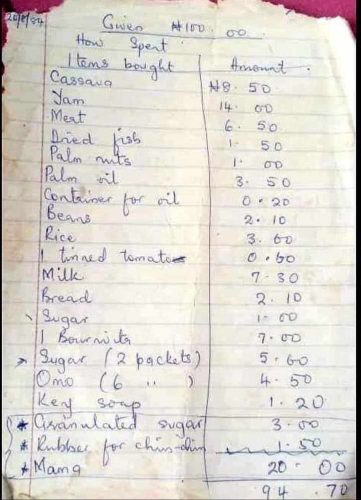 Given ₦100.00
How Spent
Items bought Amount
Cassava ₦8.50
Yam 14.00
Meat 6.50
Dried fish 1.50
Palm nuts 1.00
Palm oil 3.50
Container for oil 0.20
Beans 2.10
Rice 3.60
1 tinned tomato 0.60
Milk 7.30
Bread 2.10
Sugar 1.00
1 Bournvita 7.00
Sugar (2 packets) 5.60
Omo (6 " ) 4.50
Key soap 1.20
* Granulated sugar 3.00
* Rubber for chin-chin 1.50
* Mama 20.00
94 70